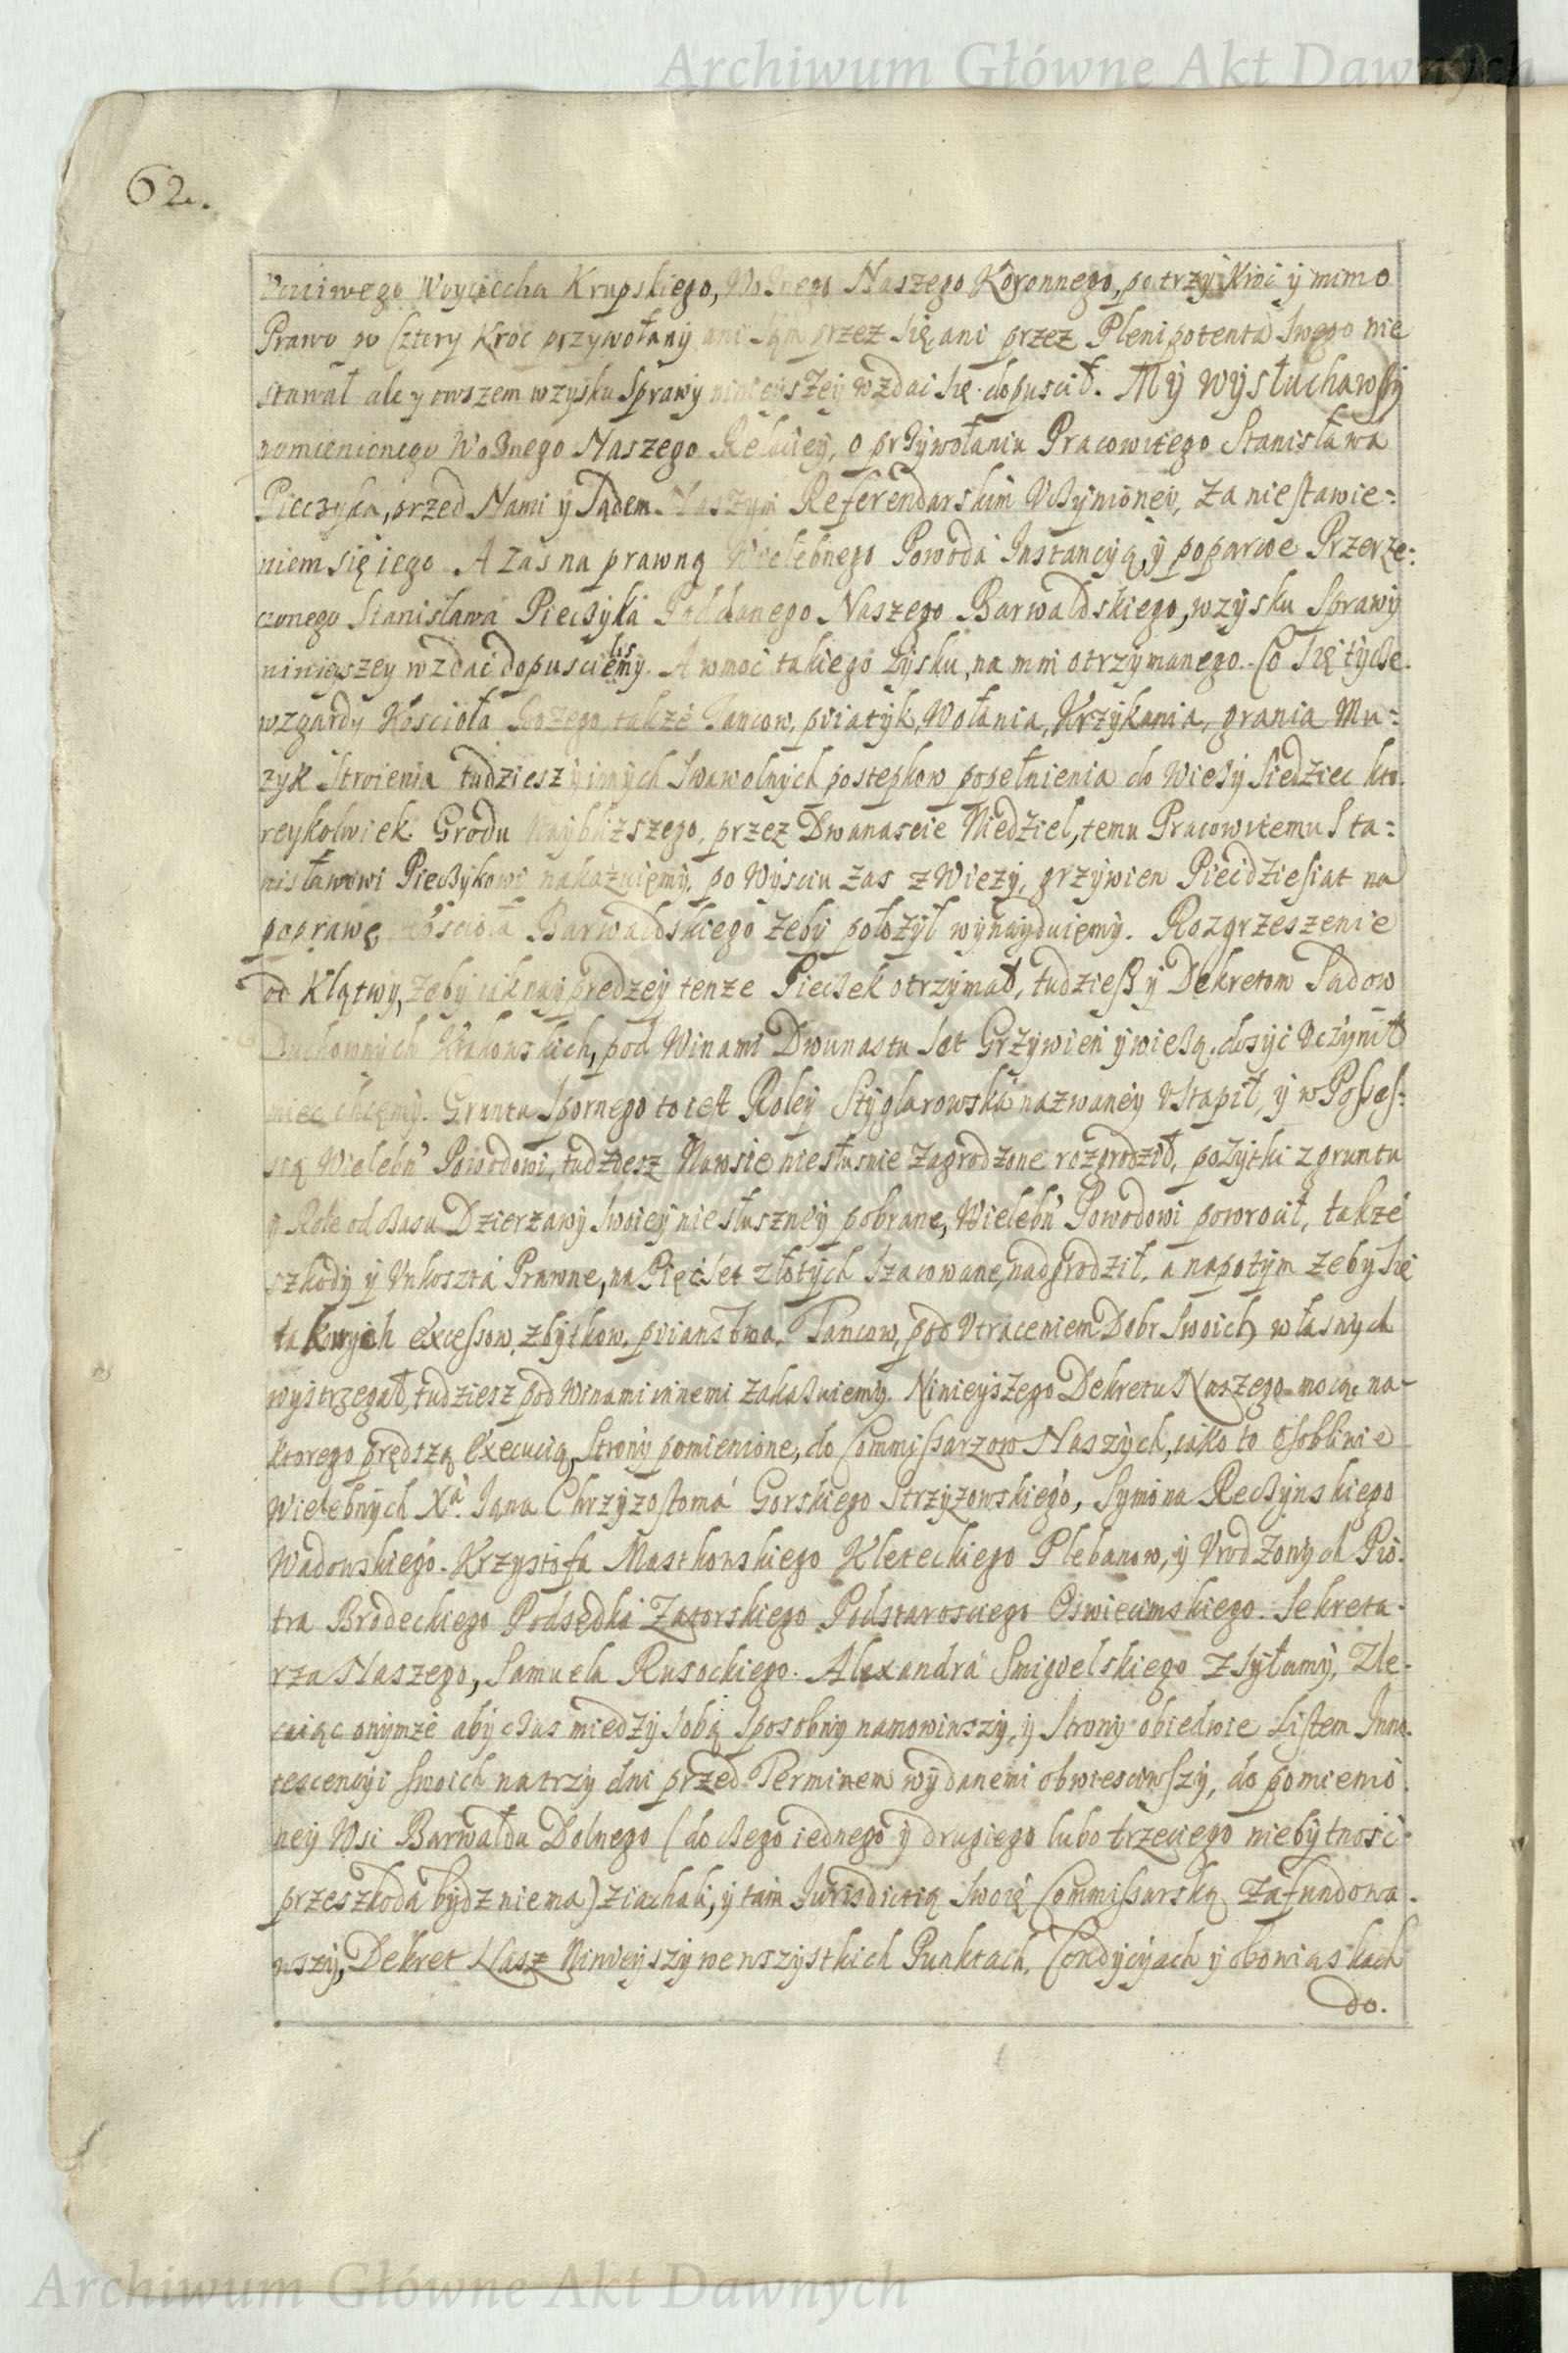 Archiwum Główne Akt Dawnych
62.
Vcciwego Woyciecha Krupskiego, Woznego Naszego Koronnego, po trzy kroć y mimo
Prawo po Cztery Kroć przywołany ani Sąm przez się ani przez Plenipotentá Swego nie
stawał ale y owszem wzysku Sprawy ninieyszey wzdać się dopuscił. My wysłuchawszy
pomienionego Woznego Naszego Relaciey, o przywołaniu Pracowitego Stanisława
Pieczyka, przed Nami y Sądem Naszym Referendarskim Vczynioney, za niestawie=
niem się iego A zas na prawną Wielebnego Powodá Instancyą, y poparcie Przerze=
czonego Stanisławá Pieczyká Poddanego Naszego Barwaldskiego, wzysku Sprawy
ninieyszey wzdać dopuscielismy. A w moc takiego zysku, na nim otrzymanego. Co Się tycze
wzgardy Kościoła Bożego, takze Tancow, piiatyk, Wołania, Krzykania, grania Mu=
zyk Stroienia tudziesz y innych Swawolnych postepkow popełnienia do Wiezy Siedziec kto
reykolwiek Grodu Nayblizszego, przez Dwanascie Niedziel, temu Pracowitemu Sta=
nisławowi Pieczykowi nakazuiemy, po Wysciu zas z Wiezy, grzywien Piecdziesiat na
poprawę Kościoła Barwaldskiego zeby połozył wynayduiemy. Rozgrzeszenie
od Klątwy, zeby iaknayprędzey tenze Pieczek otrzymał, tudziesz y Dekretom Sadow
Duchownych Krakowskich, pod Winami Dwunastu Set Grzywien y wiezą, dosyć Vczynił
miec chcemy. Gruntu Spornego to iest Roley Styglarowská nazwaney Vstąpił, y w Posses=
sią Wielebn' Powodowi, tudziesz Nawsie niesłusnie zagrodzone rozgrodził, pozytki z gruntu
y Role od czasu Dzierzawy Swoiey niesłuszney pobrane, Wielebn' Powodowi powrocił, takze
szkody y Vnkosztá Prawne, na Pięćset złotych Szacowane, nadgrodził, a napotym zeby Się
takowych excessow, zbytkow, piianstwa, Tancow, pod Vtraceniem Dobr Swoich własnych
wystrzegał, tudziesz pod winami innemi zakazuiemy. Ninieyszego Dekretu Naszego mocą na
ktorego prędszą Execucią, Strony pomienione, do Commissarzow Naszych, iako to osobliwie
Wielebnych Xá. Iana Chrzyzostomá Gorskiego Strzyzowskiego, Symona Reczynskiego
Wadowskiego. Krzystofa Mastkowskiego Kleteckiego Plebanow, y Vrodzonych Pio.
tra Brodeckiego Podsędká Zatorskiego Podstarosciego Oswiecimskiego. Sekreta.
rza Naszego, Samuela Rusockiego. Alexandrá Smigielskiego zsyłamy, Zle.
caiąc onymze aby czas miedzy Sobą Sposobny namowiwszy, y Strony obiedwie Listem Inno.
tescencyi swoich na trzy dni przed Terminem wydanemi obwiesciwszy, do pomienio.
ney Wsi Barwałdu Dolnego (do czego iednego y drugiego lubo trzeciego niebytność
przeszkodą bydz niema) ziachali, y tam Jurisdictią Swoię Commissarską zafundowa.
wszy, Dekret Nasz Ninieyszy we wszystkich Punktach, Condycyach y obowiąskach
do.
Archiwum Główne Akt Dawnych